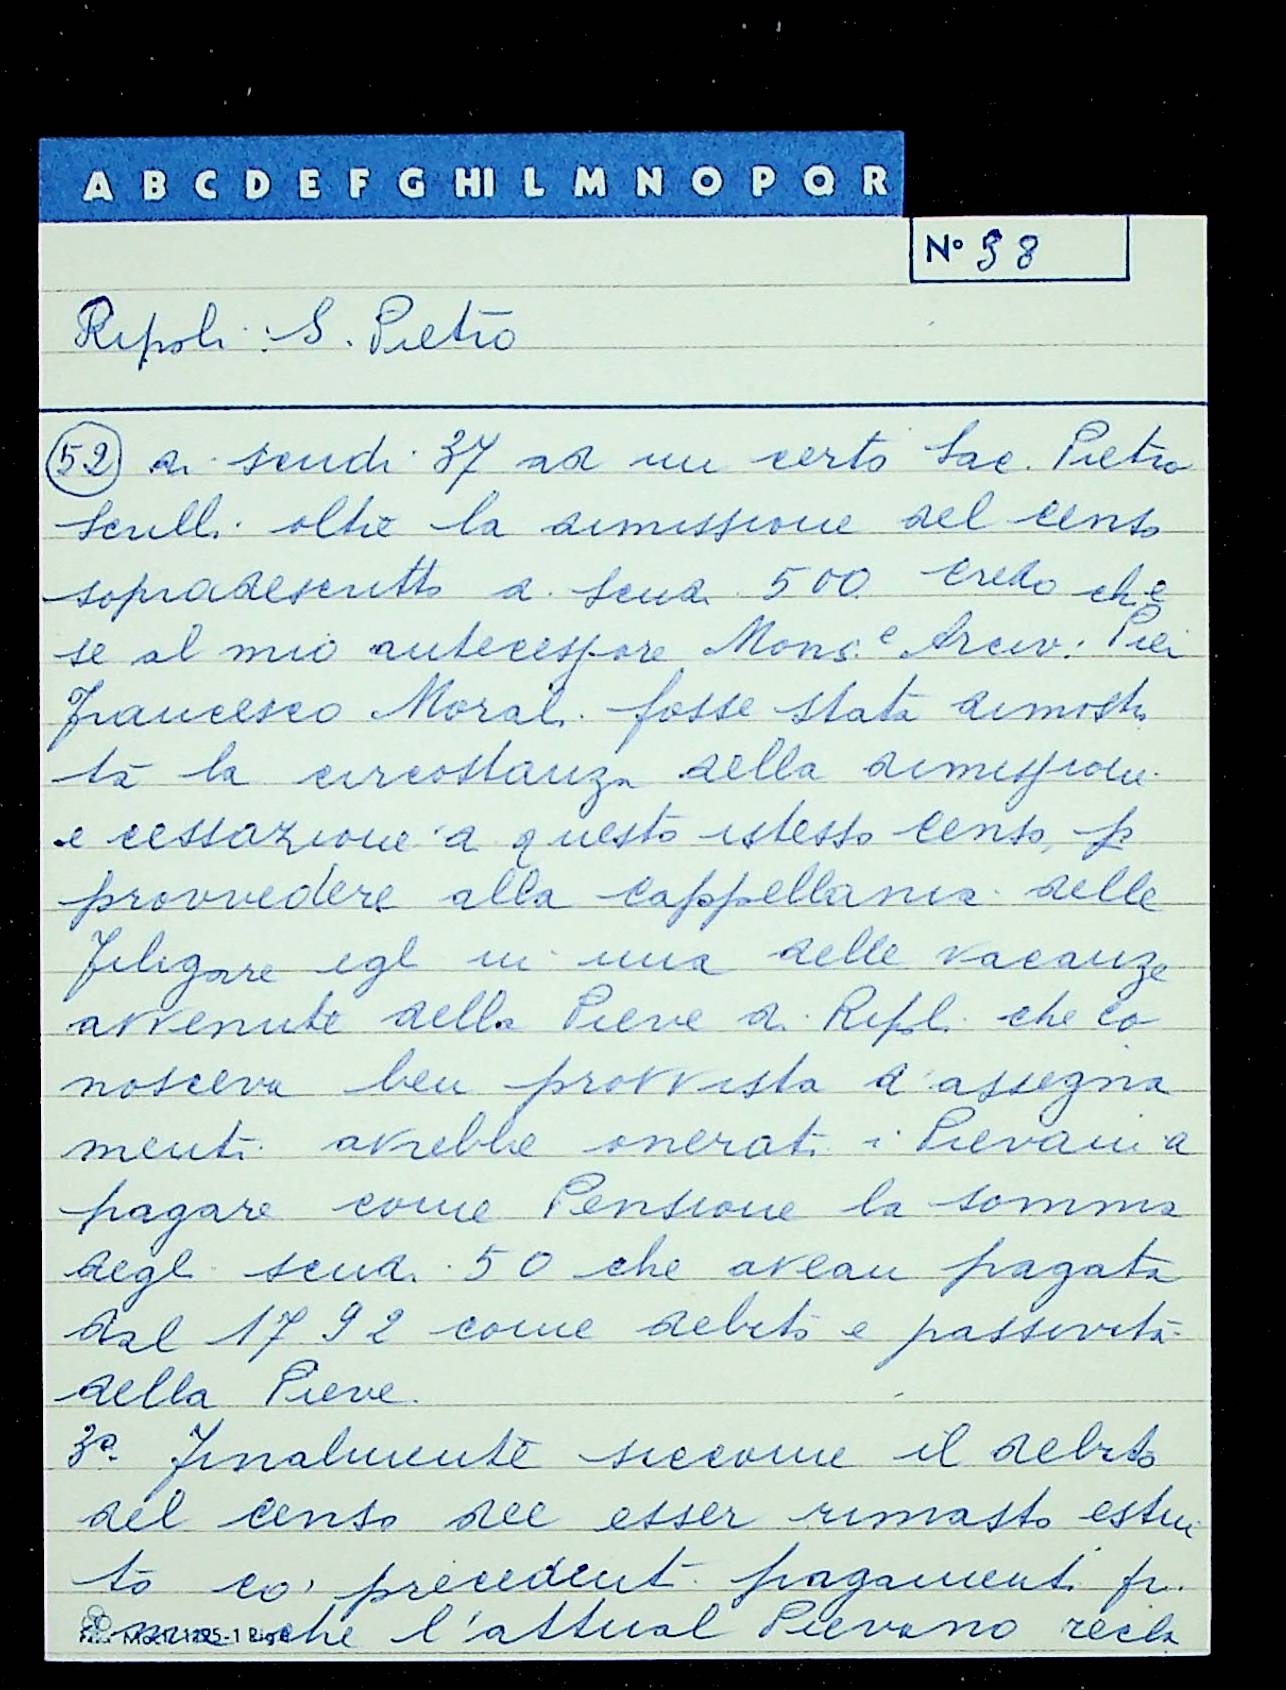 A B C D E F G HI L M N O P Q R
N° 98
Ripoli: S. Pietro
52 di scudi 37 ad un certo Sac. Pietro
Sculli oltre la dimissione del censo
sopradescritto di scudi 500 credo che
se al mio antecessore Mons.e Arciv: Pier
Francesco Morali fosse stata dimostra
ta la circostanza della dimissione
e cessazione di questo istesso censo, p
provvedere alla cappellania delle
Filigare egli in una delle vacanze
avvenute della Pieve di Ripoli che co
nosceva ben provvista d'assegna
menti avrebbe onerati i Pievani a
pagare come Pensione la somma
degli scudi 50 che avean pagata
dal 1792 come debito e passività
della Pieve.
3° Finalmente siccome il debito
del censo dee esser rimasto estin
to co' precedenti pagamenti pri
ma che l'attual Pievano recla